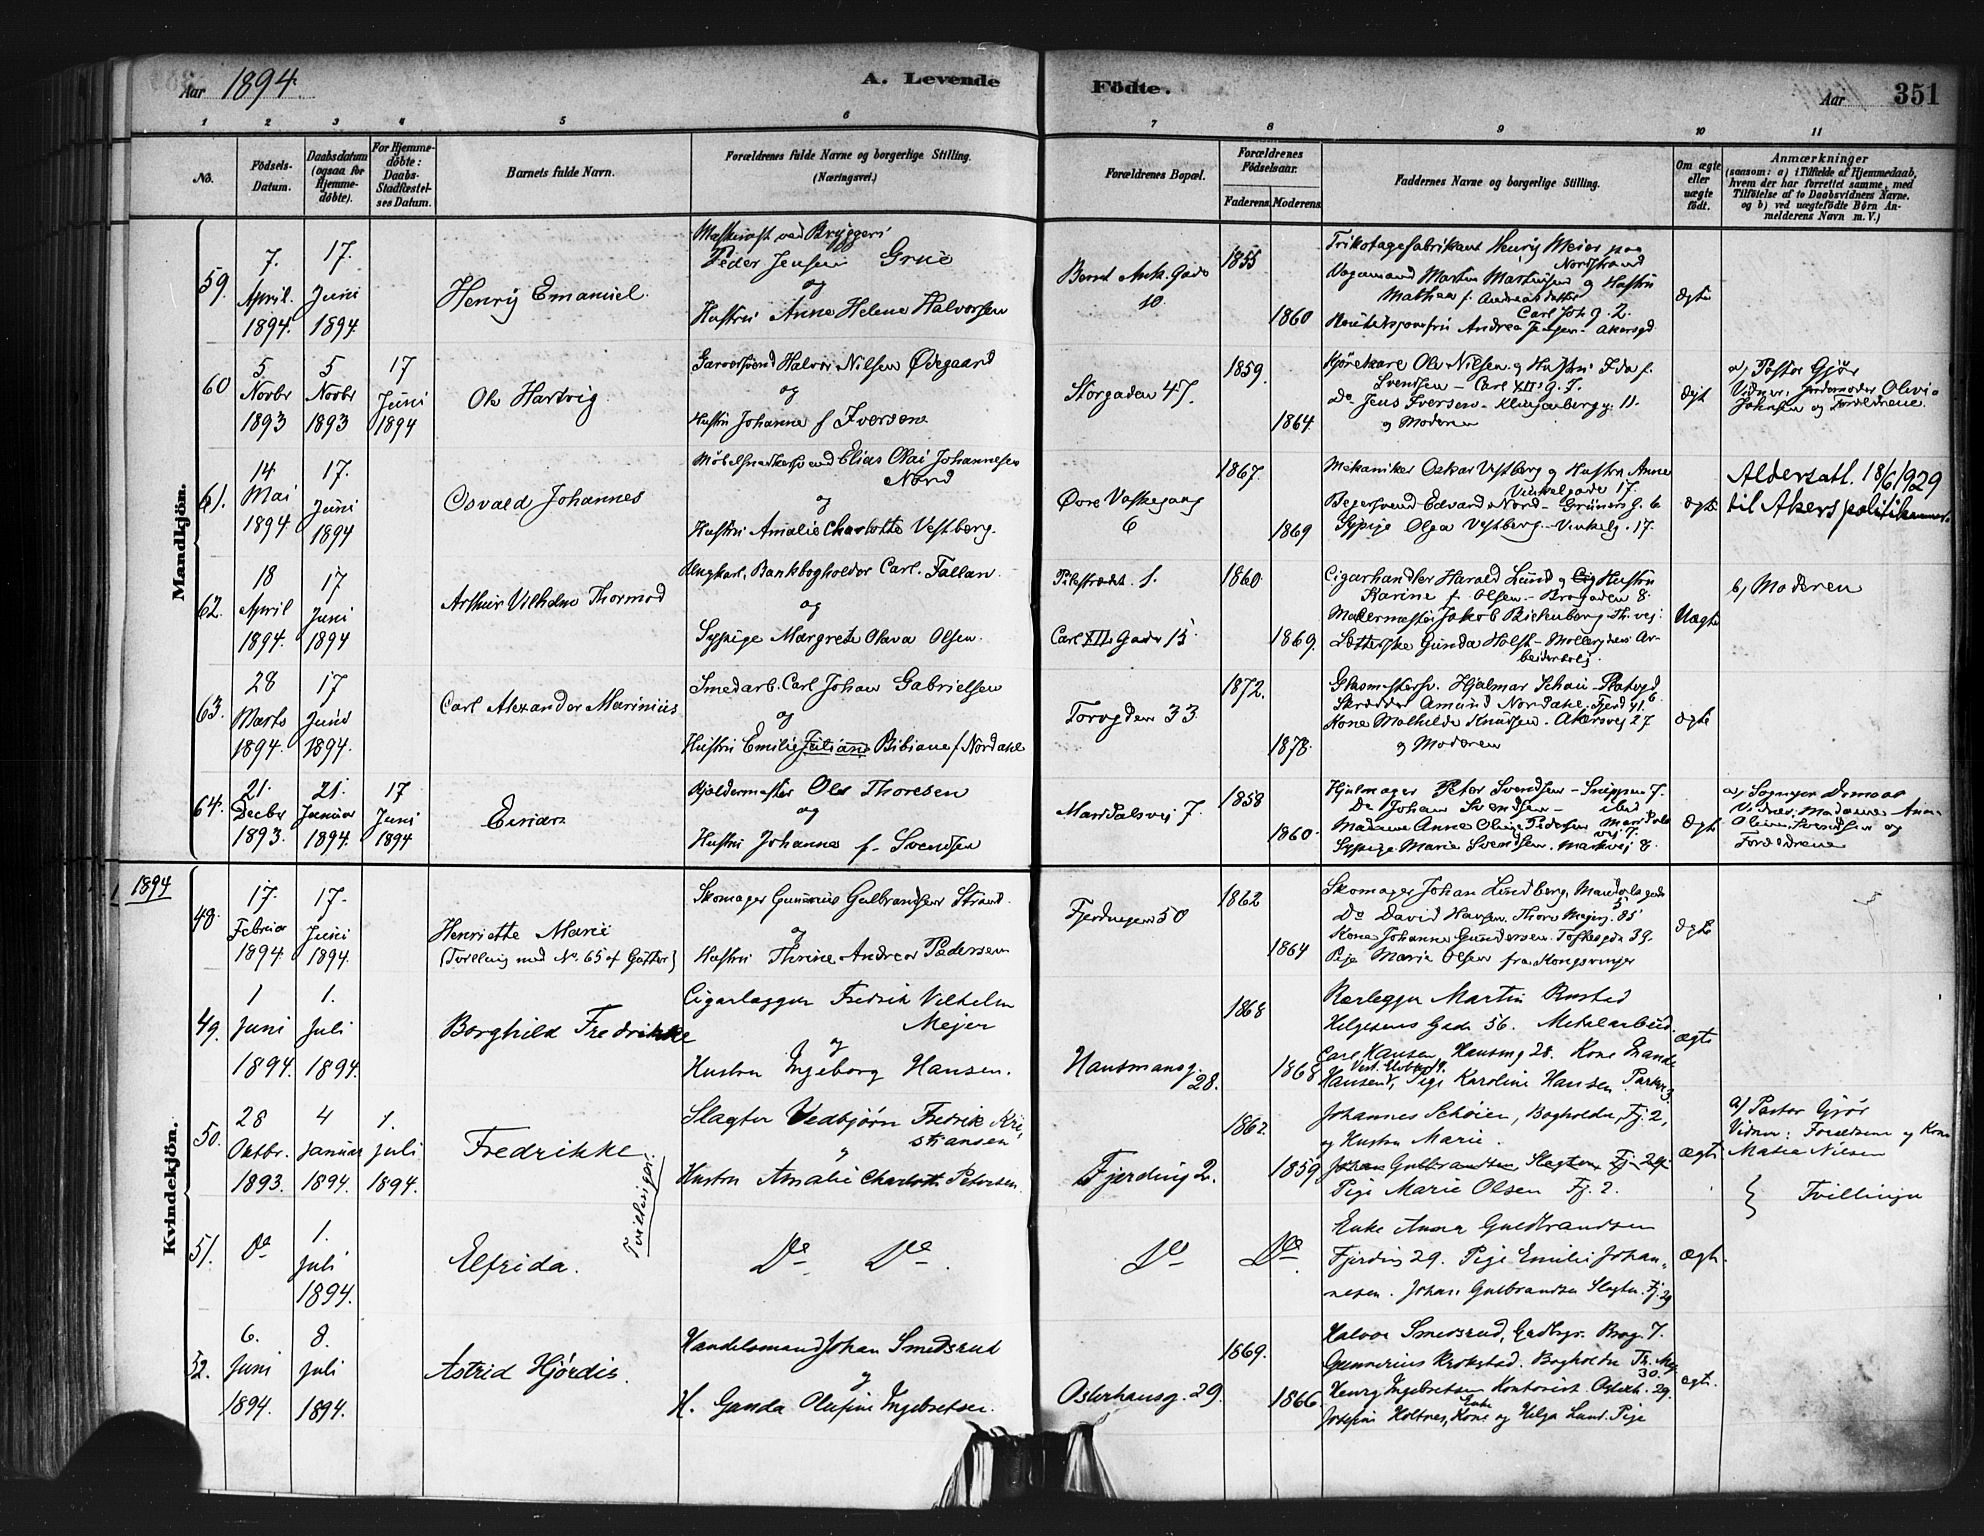 Aar 1894.
A. Levende
Födte.
Aar
351
1
2
3
4
5
6
7
8
9
10
11
No.
Födsels-
Datum.
Daabsdatum
(ogsaa for
Hjemme-
döbte).
For Hjemme-
döbte:
Daabs-
Stadfæstel-
ses Datum.
Barnets fulde Navn.
Forældrenes fulde Navne og borgerlige Stilling.
(Næringsvei.)
Forældrenes Bopæl.
Forældrenes
Födselsaar.
Faderens.
Moderens.
Faddernes Navne og borgerlige Stilling.
Om ægte
eller
uægte
födt.
Anmærkninger
(saasom: a) i Tilfælde af Hjemmedaab,
hvem der har forrettet samme, med
Tilföielse af to Daabsvidners Navne.
og b) ved uægtefödte Börn An-
melderens Navn m. V.)
Mandkjön.
59.
7.
April.
1894.
17.
Juni
1894.
Henry Emanuel.
ved Bryggeri
Peder Jensen Grue
og
Hustru Anne Helene Halvorsen
Bernt Ank. Gade
10.
1855
1860
Trikotagefabrikant Henrij Meier paa
Nordstrand
Vognmand Martin Martinsen og Hustru
Mathea f. Andreasdatter
Carl Joh g. 2.
Andrea Akersgd.
ægte
60
5
Novbr
1893
5
Novbr
1893
17
Juni
1894
Ole Hartvig.
Garversvend Halvor Nilsen Ødegaard
og
Hustru Johanne f Iversen
Storgaden 47.
1859.
1864.
Kjörekarl Ole Nilsen og Hustru Ida f.
Svendsen - Carl XII's g. 7.
Do Jens Iversen - Klingenbergg. 11.
og Moderen
ægt
a) Pastor Gjör
Vidner: Jordemoder Olivia
Johnsen og Forældrene.
61.
14
Mai
1894
17.
Juni
1894
Osvald Johannes
Möbelsnedkersvend Elias Olai Johannesen
Nord
og
Hustru Amalie Charlotte Vestberg.
Övre Vaskegang
6
1867.
1869
Mekaniker Oskar Vestberg og Hustru Anne
Vinkelgade 17.
Bagersvend Edvard Nord - Grüners g. 6
Sypige Olga Vestberg - Vinkelg. 17.
ægte
Aldersatt. 18/6 1929
til Akers politikammer.
62.
18
April
1894.
17
Juni
1894
Arthur Vilhelm Thormod
Ungkarl, Bankbogholder Carl Fallan.
og
Sypige Margrete Olava Olsen.
Pilestrædet 1.
Carl XII's Gade 15
1860.
1869.
Cigarhandler Harald Lund og Hustru
Karine f. Olsen - Brogaden 8.
Malermester Jakob Thr. vej
Gunda Holst - Ar-
beiderbolig.
Uægte
b) Moderen
63.
28
Marts
1894.
17
Juni
1894.
Carl Alexander Marinius
Smedarb. Carl Johan Gabrielsen
og
Hustru Emilie Juliane Bibiane f. Nordahl
Torvgden 33
1872.
1878.
Glasmestersv. Hjalmar Schau - 6.
Skrædder Amund Nordahl, Fjerd 41
Kone Mathilde Knudsen. Akersvej 27
og Moderen
ægte
64.
21.
Decber
1893.
21.
Januar
1894.
17
Juni
1894
Einar
Kjeldermester Ole Thoresen
og
Hustru Johanne f. Svendsen
Maridalsvej 7.
1858
1860.
Hjulmager Peter Svendsen - Snippen 7.
Do Johan Svendsen - ibid
Madame Anne Oline Pedersen Maridals
vej 7.
Sypige Marie Svendsen. Markvej 8.
ægte
a) Sogneper
Vidner: Madame Anne
Oline Svendsen og
Forældrene
1894
Kvindekjön.
48.
17.
Februar
1894.
17.
Juni
1894.
Henriette Marie
(Tvilling med No. 65 af Gutter)
Skomager Gunerius Gulbrandsen Strand.
og
Hustru Thrine Andrea Pedersen
Fjerdingen 50
1862
1864
Skomager Johan Lundberg, Maridalsgade
5
Do David Hansen. Thorv Mejers g. 85
Kone Johanne Gundersen. Toftesgde 39.
Pige Marie Olsen fra Kongsvinger
ægte
49.
1
Juni
1894.
1.
Juli
1894.
Borghild Fredrikke
Cigarlægger Fredrik Vilhelm
Mejer
og
Hustru Ingeborg Hansen.
Hausmansg.
28.
1868
1868
Rørlegger Martin Rustad
Helgesens Gade 56. Metalarbeid.
Carl Hansen, Hausmg 28. Kone
Hansen, Pige Karoline Hansen. Parkv. 3.
ægte
50.
28
Oktbr.
1893.
4
Januar
1894.
1.
Juli
1894.
Fredrikke
Tvillesøster.
Slagter Vedbjørn Fredrik Kri-
stiansen
og
Hustru Amalie Charlotte Petersen
Fjerding 2.
1862.
1859
Johannes Schøien, Bogholder, Fj. 2,
og Hustru Marie.
Johan Gulbrandsen Slagter, Fj. 29.
Pige Marie Olsen Fj. 2.
ægte
a) Pastor Gjör
Vidner: Forældrene og Kone
Matea Nilsen
} Tvillinger
51.
Do
1.
Juli
1894.
Elfrida.
Do Do
Do
Do
Enke Anna Guldbrandsen
Fjerding 29. Pige Emilie Johan-
nesen. Johan Gulbrandsen Slagter. Fj. 29
ægte.
52.
6.
Juni
1894.
8.
Juli
1894.
Astrid Hjördis.
Handelsmand Johan Smedsrud
og
H. Ganda Olufine Ingebretsen.
Osterhausg. 29.
1869.
1866.
Halvor Smedsrud, Gadbgr. Brog. 7.
Gunnerius Krokstad. Bogholder Th. Mey.
30.
Henry Ingebretsen Kontorist Osterh. 29.
Enke
Josefine Holtnes, Kone og Helga Lund. Pige
ægt.